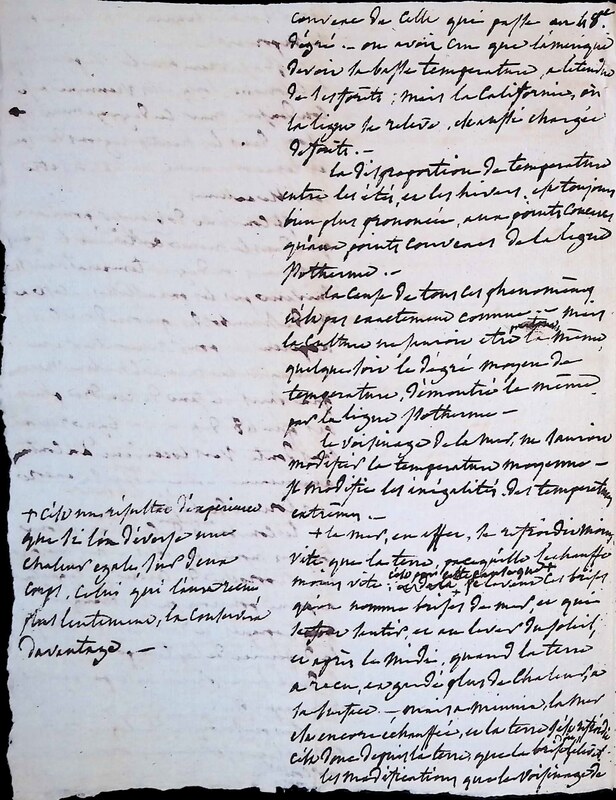 convexe de celle qui passe au 48.e
dégré. - on avoit cru que l'amérique
devoit sa basse temperature, a letendue
de ses forêts; mais la Californie, où
la ligne se releve, est aussi chargée
de forêts. -
la disproportion de temperature
entre les étés, et les hivers, est toujours
bien plus prononcée, aux points concaves
qu'aux points convexes de la ligne
Isotherme. -
la cause de tous ces phenomènes
n'est pas exactement connue - mais
la culture ne sauroit etre partout la même
quelque soit le dégré moyen de
temperature, démontré le même
par la ligne Isotherme -
le voisinage de la mer, ne sauroit
modifier la temperature moyenne -
Il modifie les inégalités des temperatures
extrêmes. -
+ la mer, en effet, se refroidit moins
vite que la terre, parcequ'elle s'echauffe
moins vite. c'est par cette cause que +
se levent les brises
qu'on nomme brises de mer, et que
sentir, et au lever du soleil,
et après le midi, quand la terre
a recu, et gardé plus de chaleur, a
sa surface - mais a minuit, la mer
est encore échauffée, et la terre déja refroidie
c'est donc depuis la terre, que la brise
les modifications que le voisinage de
+ C'est un résultat d'expérience
que si l'on déverse une
chaleur egale sur deux
corps, celui qui l'aura recue
plus lentement, la conservera
davantage. -